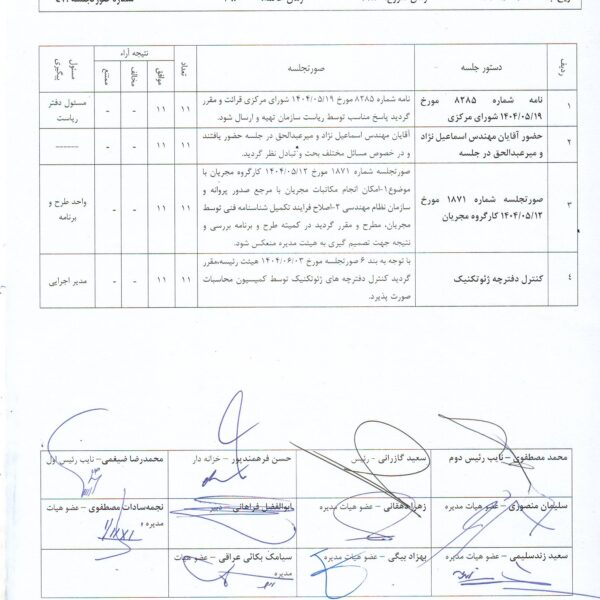 شماره صورتجلسه
ردیف دستور جلسه صورتجلسه نتیجه آراء مسئول پیگیری
تعداد موافق مخالف ممتنع
۱ نامه شماره ۸۲۸۵ مورخ ۱۴۰۴/۰۵/۱۹ شورای مرکزی
نامه شماره ۸۲۸۵ مورخ ۱۴۰۴/۰۵/۱۹ شورای مرکزی قرائت و مقرر
گردید پاسخ مناسب توسط ریاست سازمان تهیه و ارسال شود.
۱۱ ۱۱ - - مسئول دفتر ریاست
۲ حضور آقایان مهندس اسماعیل نژاد و میرعبدالحق در جلسه
آقایان مهندس اسماعیل نژاد و میرعبدالحق در جلسه حضور یافتند
و در خصوص مسائل مختلف بحث و تبادل نظر گردید.
۱۱ ۱۱ - - ------
۳ صورتجلسه شماره ۱۸۷۱ مورخ ۱۴۰۴/۰۵/۱۲ کارگروه مجریان
صورتجلسه شماره ۱۸۷۱ مورخ ۱۴۰۴/۰۵/۱۲ کارگروه مجریان با
موضوع ۱-امکان انجام مکاتبات مجریان با مرجع صدور پروانه و
سازمان نظام مهندسی ۲-اصلاح فرایند تکمیل شناسنامه فنی توسط
مجریان، مطرح و مقرر گردید در کمیته طرح و برنامه بررسی و
نتیجه جهت تصمیم گیری به هیئت مدیره منعکس شود.
۱۱ ۱۱ - - واحد طرح و برنامه
۴ کنترل دفترچه ژئوتکنیک
با توجه به بند ۶ صورتجلسه مورخ ۱۴۰۴/۰۶/۰۳ هیئت رئیسه،مقرر
گردید کنترل دفترچه های ژئوتکنیک توسط کمیسیون محاسبات
صورت پذیرد.
۱۱ ۱۱ - - مدیر اجرایی
محمد مصطفوی – نایب رئیس دوم سعید گازرانی – رئیس حسن فرهمندپور – خزانه دار محمدرضا ضیغمی – نایب رئیس اول
سلیمان منصوری – عضو هیات مدیره زهرا دهقانی – عضو هیات مدیره ابوالفضل فراهانی – دبیر نجمه‌سادات مصطفوی – عضو هیات مدیره
سعید زندسلیمی – عضو هیات مدیره بهزاد بیگی – عضو هیات مدیره سیامک بکائی عراقی – عضو هیات مدیره